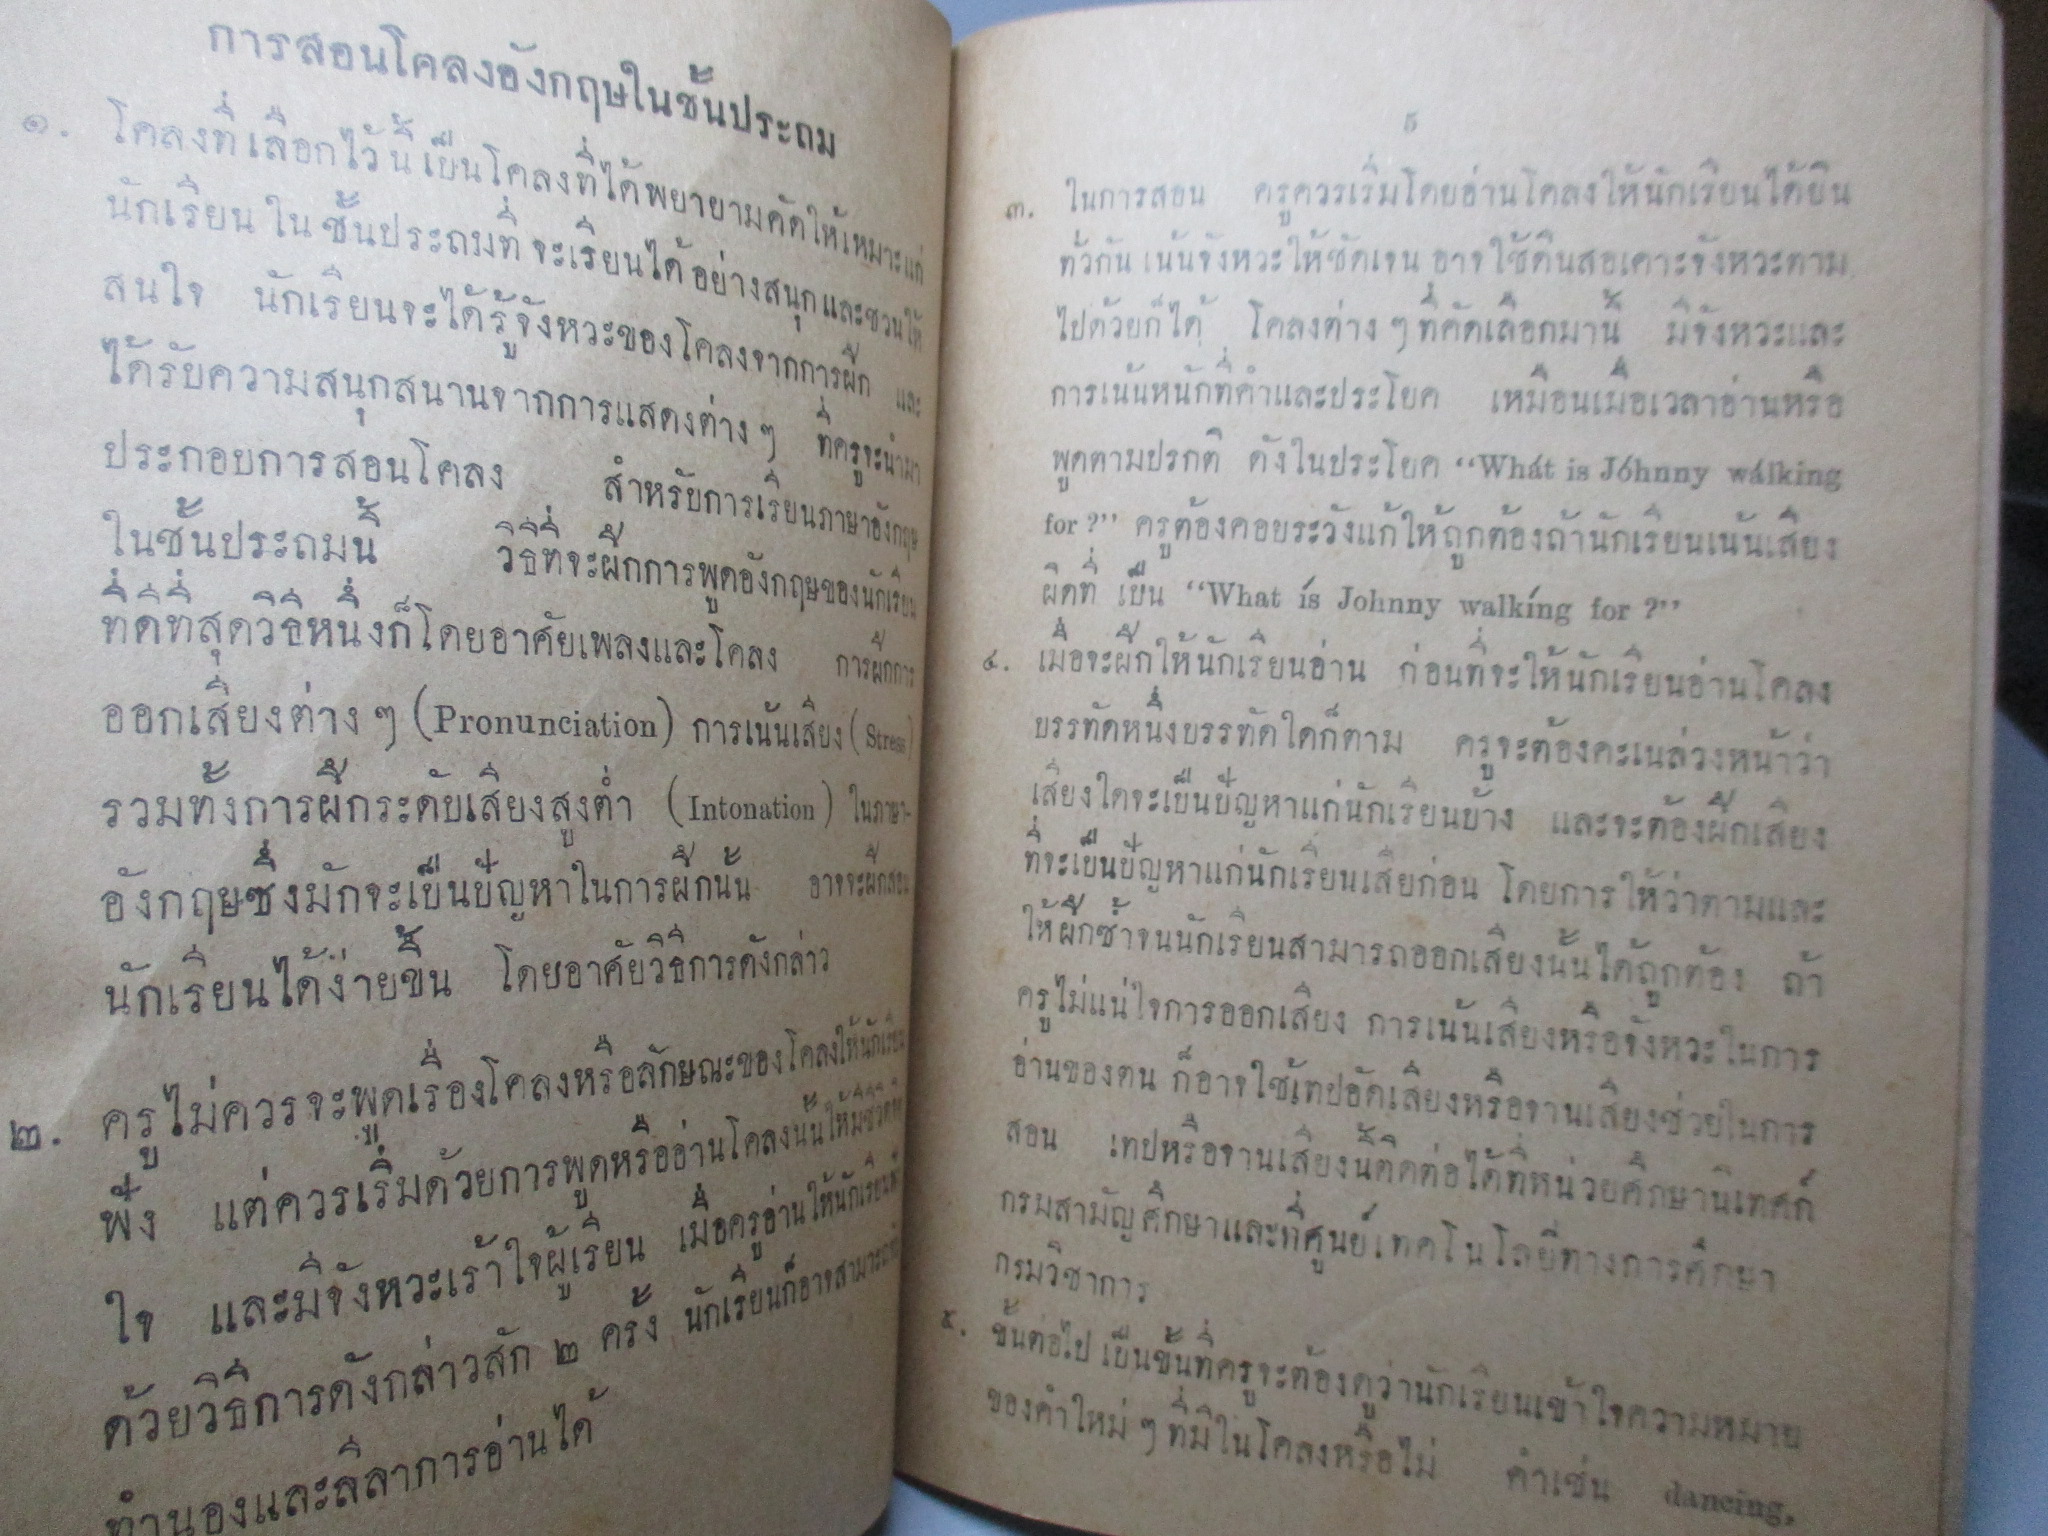 การสอนโคลงอังกฤษในชั้นประถม
๑. โคลงที่เลือกไว้นี้เป็นโคลงที่ได้พยายามคัดให้เหมาะแก่
นักเรียนในชั้นประถมที่จะเรียนได้อย่างสนุกและชวนให้
สนใจ นักเรียนจะได้รู้จังหวะของโคลงจากการฝึก และ
ได้รับความสนุกสนานจากการแสดงต่าง ๆ ที่ครูจะนำมา
ประกอบการสอนโคลง สำหรับการเรียนภาษาอังกฤษ
ในชั้นประถมนี้ วิธีที่จะฝึกการพูดอังกฤษของนักเรียน
ที่ดีที่สุดวิธีหนึ่งก็โดยอาศัยเพลงและโคลง การฝึกการ
ออกเสียงต่าง ๆ (Pronunciation) การเน้นเสียง (Stress)
รวมทั้งการฝึกระดับเสียงสูงต่ำ (Intonation) ในภาษา-
อังกฤษซึ่งมักจะเป็นปัญหาในการฝึกนั้น อาจจะฝึกสอน
นักเรียนได้ง่ายขึ้น โดยอาศัยวิธีการดังกล่าว
๒. ครูไม่ควรจะพูดเรื่องโคลงหรือลักษณะของโคลงให้นักเรียน
ฟัง แต่ควรเริ่มด้วยการพูดหรืออ่านโคลงนั้นให้มีชีวิตจิต
ใจ และมีจังหวะเร้าใจผู้เรียน เมื่อครูอ่านให้นักเรียน
ด้วยวิธีการดังกล่าวสัก ๒ ครั้ง นักเรียนก็อาจสามารถ
ทำนองและลีลาการอ่านได้
๕
๓. ในการสอน ครูควรเริ่มโดยอ่านโคลงให้นักเรียนได้ยิน
ทั่วกัน เน้นจังหวะให้ชัดเจน อาจใช้ดินสอเคาะจังหวะตาม
ไปด้วยก็ได้ โคลงต่าง ๆ ที่คัดเลือกมานี้ มีจังหวะและ
การเน้นหนักที่คำและประโยค เหมือนเมื่อเวลาอ่านหรือ
พูดตามปรกติ ดังในประโยค “Whát is Jóhnny wálking
for ?” ครูต้องคอยระวังแก้ให้ถูกต้องถ้านักเรียนเน้นเสียง
ผิดที่ เป็น “What ís Johnny walkíng for ?”
๔. เมื่อจะฝึกให้นักเรียนอ่าน ก่อนที่จะให้นักเรียนอ่านโคลง
บรรทัดหนึ่งบรรทัดใดก็ตาม ครูจะต้องคะเนล่วงหน้าว่า
เสียงใดจะเป็นปัญหาแก่นักเรียนบ้าง และจะต้องฝึกเสียง
ที่จะเป็นปัญหาแก่นักเรียนเสียก่อน โดยการให้ว่าตามและ
ให้ฝึกซ้ำจนนักเรียนสามารถออกเสียงนั้นได้ถูกต้อง ถ้า
ครูไม่แน่ใจการออกเสียง การเน้นเสียงหรือจังหวะในการ
อ่านของตน ก็อาจใช้เทปอัดเสียงหรือจานเสียงช่วยในการ
สอน เทปหรือจานเสียงนี้ติดต่อได้ที่หน่วยศึกษานิเทศก์
กรมสามัญศึกษาและที่ศูนย์เทคโนโลยีทางการศึกษา
กรมวิชาการ
๕. ขั้นต่อไป เป็นขั้นที่ครูจะต้องดูว่านักเรียนเข้าใจความหมาย
ของคำใหม่ ๆ ที่มีในโคลงหรือไม่ คำเช่น dancing,